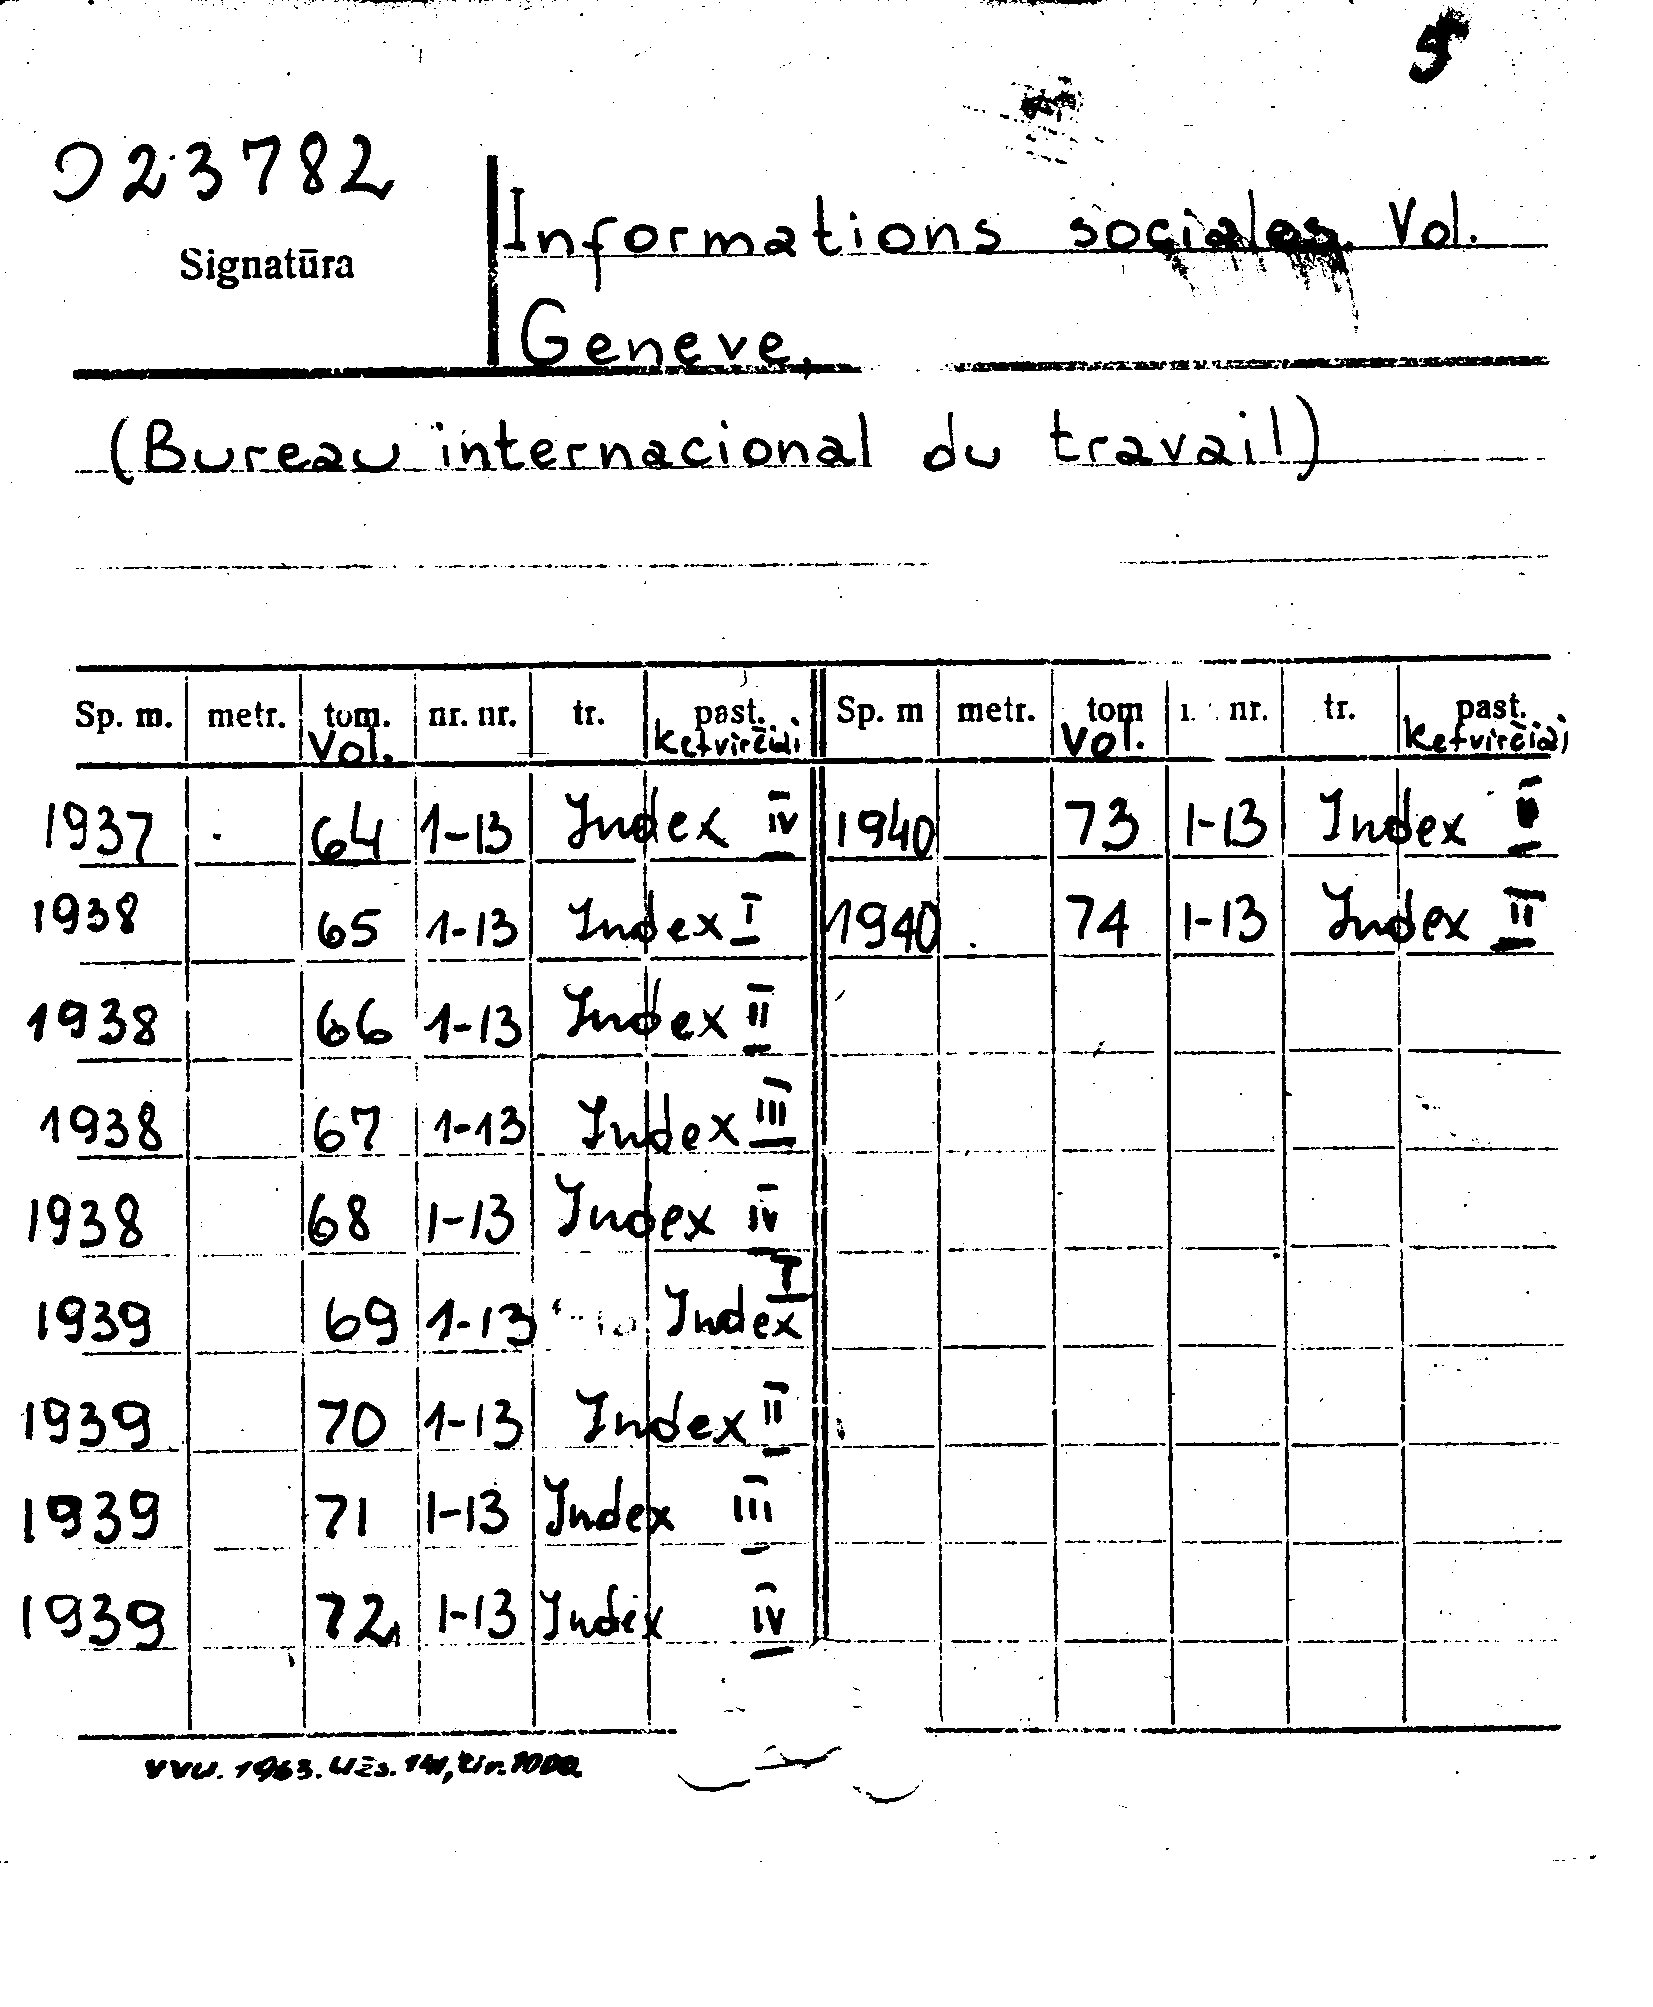 5
023782
Signatūra
Informations sociales. Vol.
Geneve.
(Bureau internacional du travail)
Sp. m. metr. tom. nr. nr. tr. past. Sp. m metr. tom nr. tr. past.
Vol. Ketvirčiai Vol. Ketvirčiai
1937 64 1-13 Index IV 1940 73 1-13 Index
1938 65 1-13 Index I 1940 74 1-13 Index II
1938 66 1-13 Index II
1938 67 1-13 Index III
1938 68 1-13 Index IV
1939 69 1-13 Index I
1939 70 1-13 Index II
1939 71 1-13 Index III
1939 72 1-13 Index IV
VVU. 1963. Užs. tir. 1000